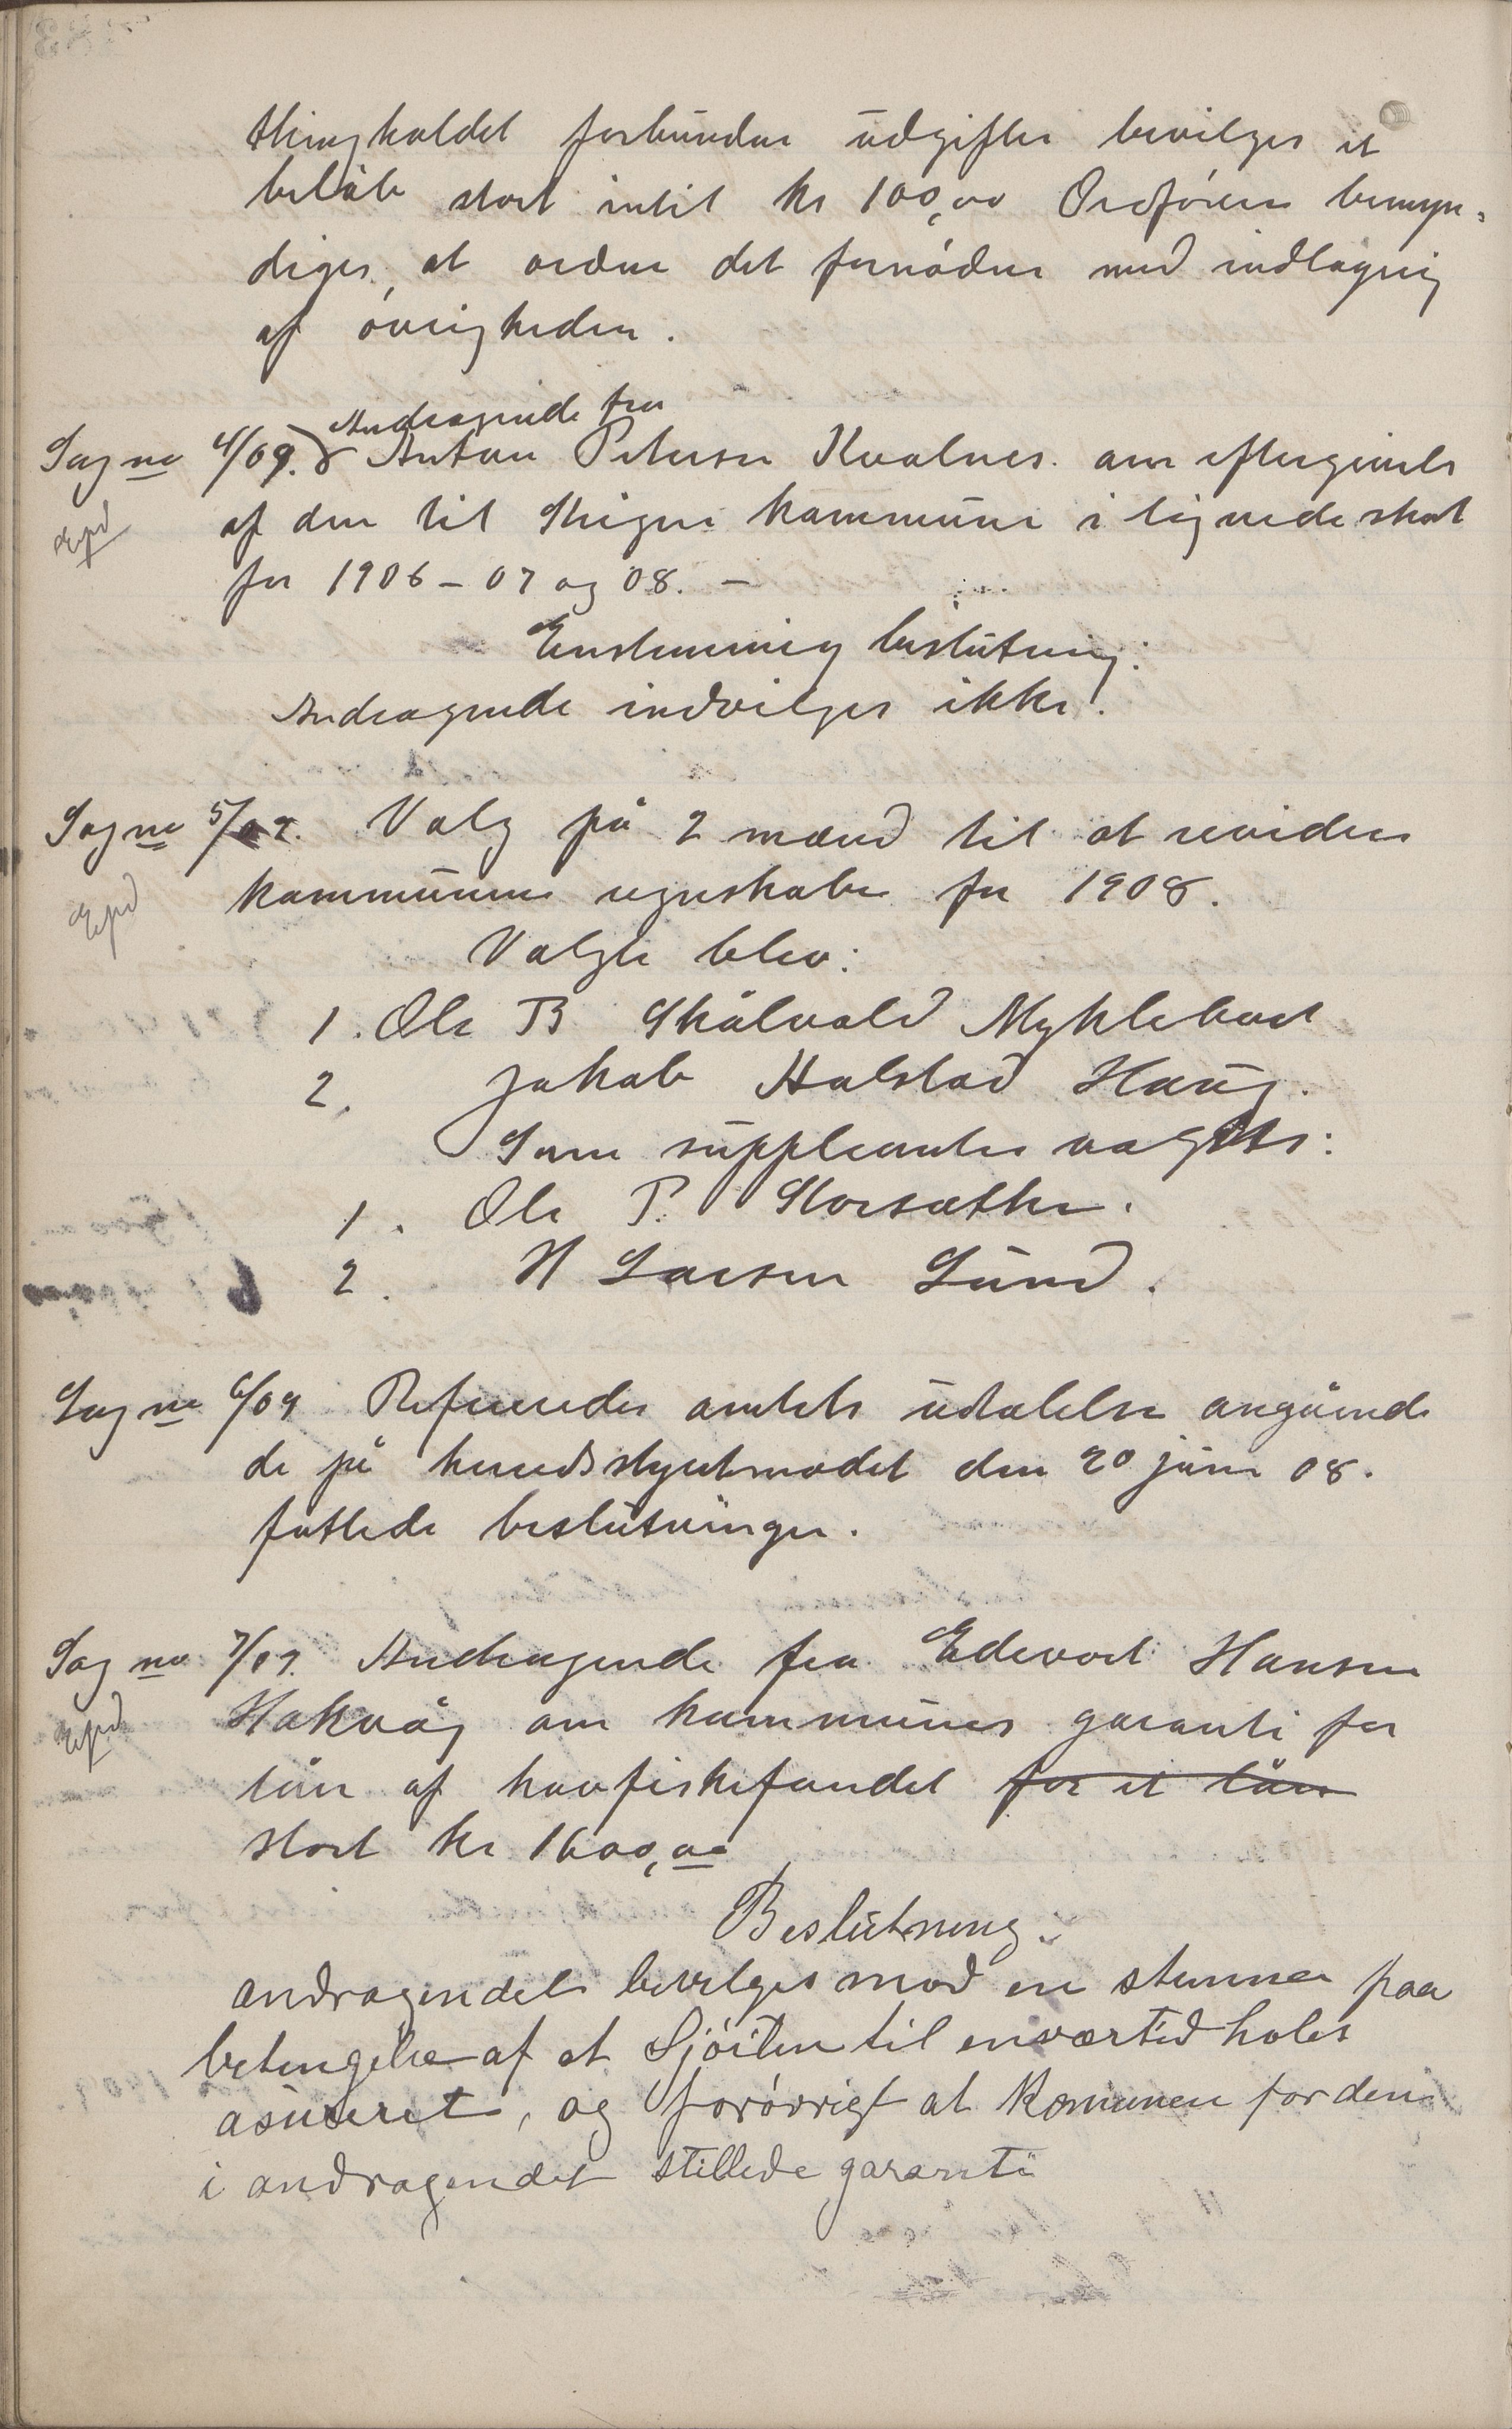 thingholdet forbundne udgifter bevilges et
beløb stort intil kr 100,00 Ordføren bemyn-
diges, at ordne det fornødne med indlagring
af øvrigheden.
Andragende fra
Sag no 4/09. Anton Petersen Kvalnes. om eftergivels
af den til Skigen kommune i lignede skat
for 1906 - 07 og 08. -
Expd
Enstemmig beslutning:
Andragende indvilges ikke!
Sag no 5/09. Valg på 2 mænd til at revidere
kommunens regnskaber for 1908.
Expd
Valgte blev:
1. Ole B Skålvold Myklebost
2. Jakob Halstad Haug.
Som suppleanter valgtes:
1. Ole P. Storsæther.
2. H Larsen Lund.
Sag no 6/09 Refereredes amtets udtalelse angående
de på herredsstyretmødet den 20 juni 08.
fattede beslutninger.
Sag no 7/09. Andragende fra Edevart Hansen
Expd
Hakvåg om kommunens garanti for
lån af havfiskefondet for et lån
stort kr 1600,00
Beslutning.
andragendet bevilges mod en stemme paa
betingelse af at Sjöiten til enværtid holes
asureret, og forövrigt at Komunen for den
i andragendet stillede garanti